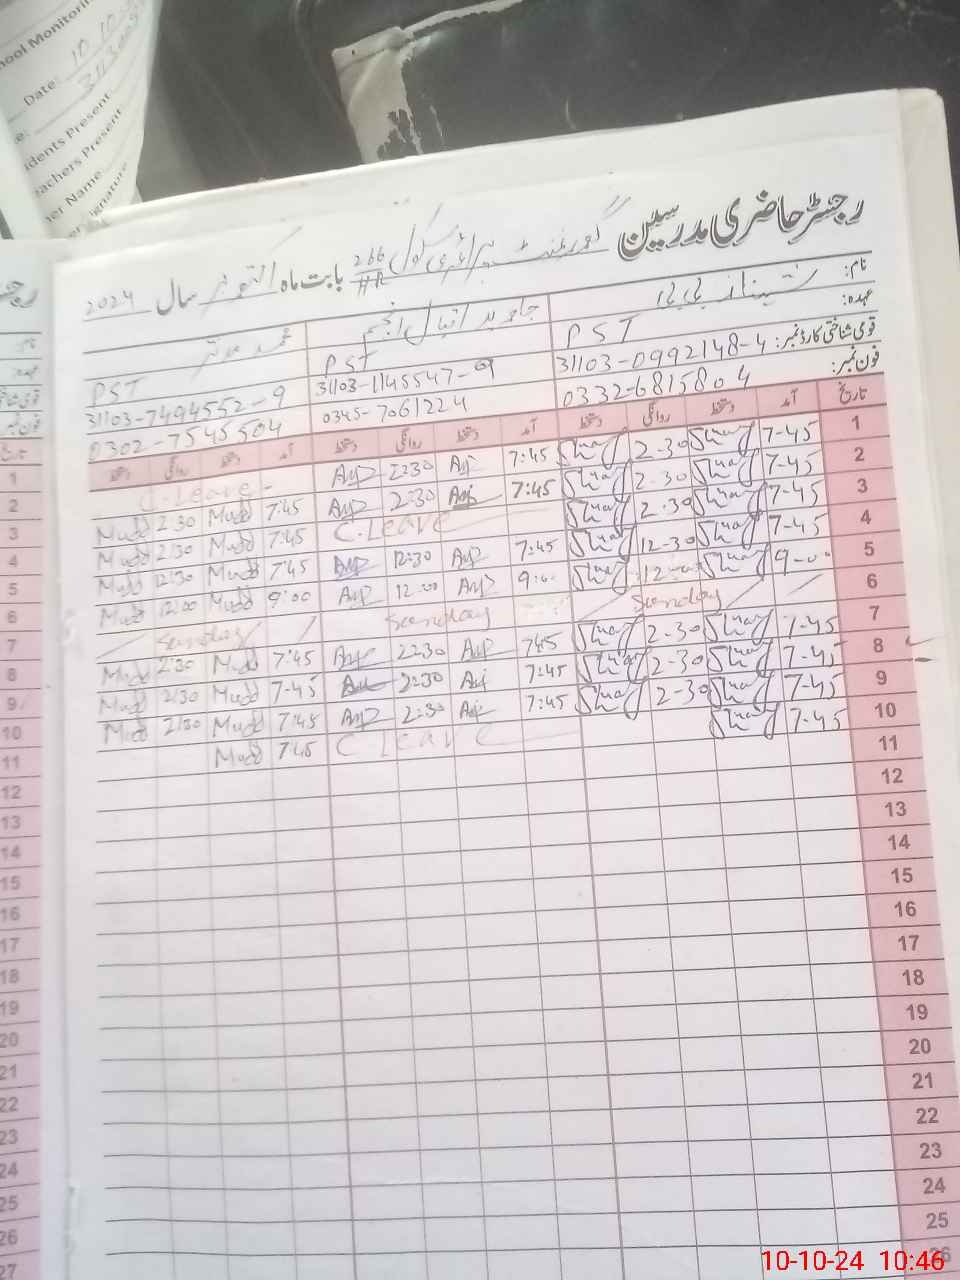 School Monitoring
Date: 10 10
Students Present
Teachers Present
Name
Signature
رجسٹر حاضری مدرسین گورنمنٹ پرائمری سکول 266 HR بابت ماہ اکتوبر سال 2024
نام: شہناز بی بی جاوید اقبال انجم محمد مدثر
عہدہ: PST PST PST
قومی شناختی کارڈ نمبر: 31103-0992148-4 31103-1145547-9 31103-7494552-9
فون نمبر: 0332-6815804 0345-7061224 0302-7545504
تاریخ آمد دستخط روانگی دستخط آمد دستخط روانگی دستخط آمد دستخط روانگی دستخط
1 7-45 2-30 7:45 2:30 C.Leave
2 7-45 2-30 7:45 2:30 7:45 Mudd 2:30 Mudd
3 7-45 2-30 C.Leave 7:45 Mudd 2:30 Mudd
4 7-45 12-30 7:45 12:30 7:45 Mudd 12:30 Mudd
5 9-00 12-00 9:00 12:00 9:00 Mudd 12:00 Mudd
6 Sunday Sunday Sunday
7 7-45 2-30 7:45 2:30 7:45 Mudd 2:30 Mudd
8 7-45 2-30 7:45 2:30 7-45 Mudd 2:30 Mudd
9 7-45 2-30 7:45 2:30 7:45 Mudd 2:30 Mudd
10 7-45 C Leave 7:45 Mudd
11
12
13
14
15
16
17
18
19
20
21
22
23
24
25
26
10-10-24 10:46